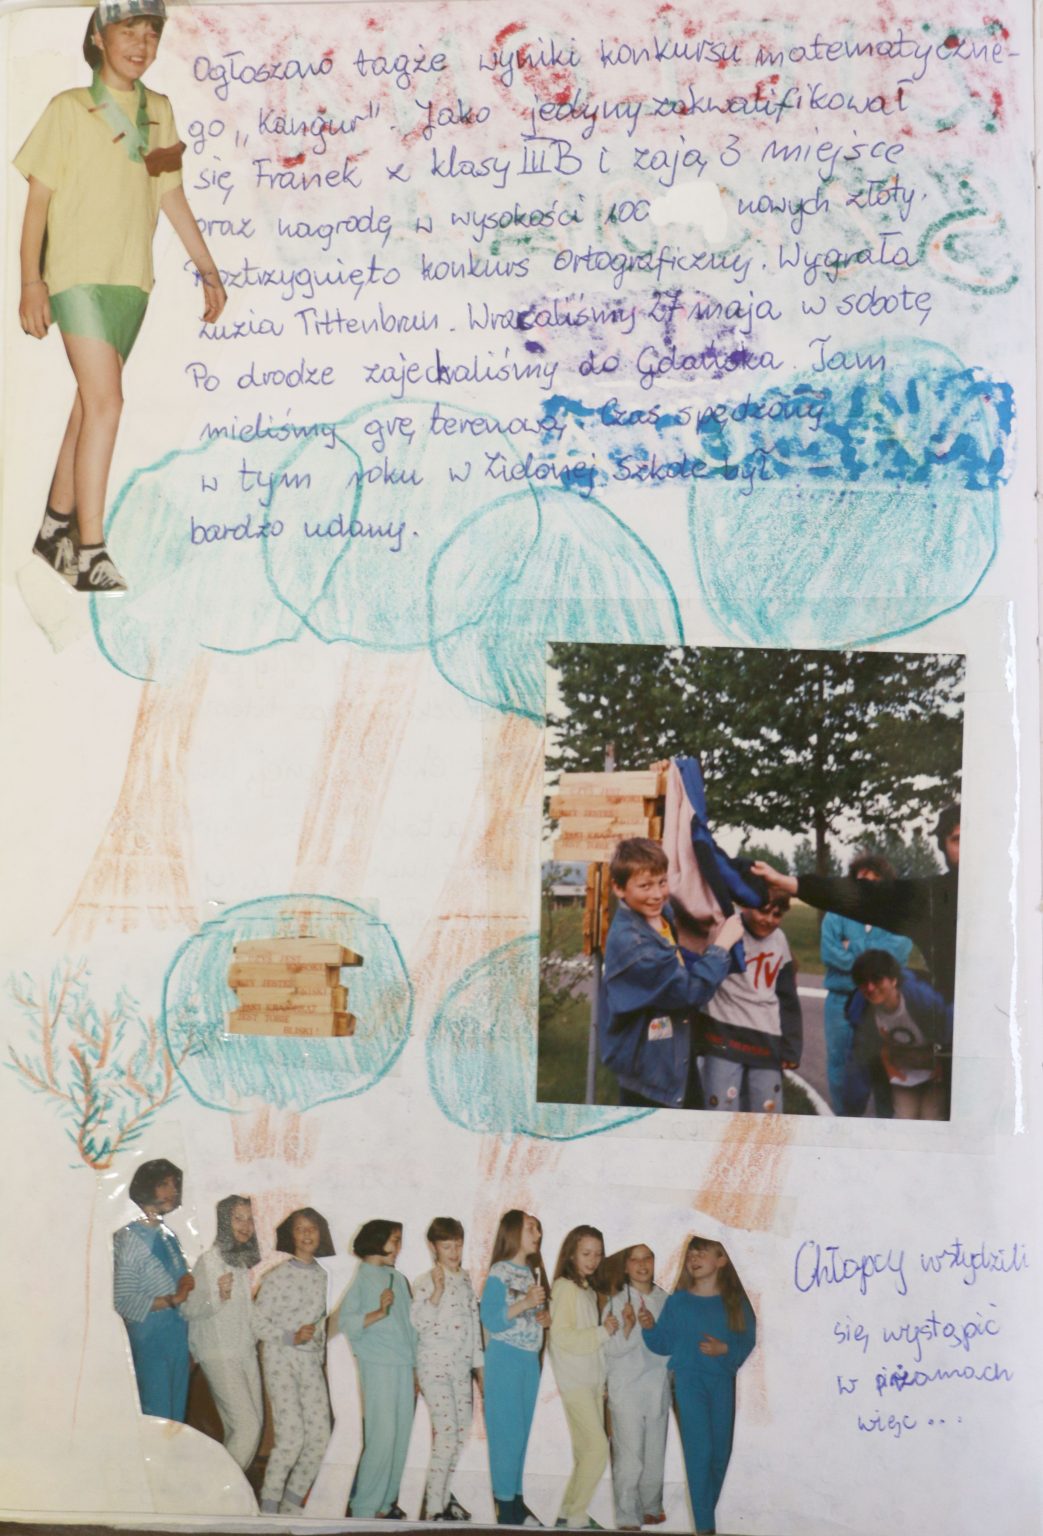 Ogłoszono tagże wyniki konkursu matematyczne-
go „Kangur". Jako jedyny zakwalifikował
się Franek z klasy III B i zają 3 miejsce
oraz nagrodę w wysokości 100 nowych złoty.
Roztrzygnięto konkurs ortograficzny. Wygrała
Zuzia Tittenbrun. Wracaliśmy 27 maja w sobotę
Po drodze zajechaliśmy do Gdańska. Tam
mieliśmy grę terenową. Czas spędzony
w tym roku w Zielonej Szkole był
bardzo udany.
JEST
WYSOKI
JEST TOBIE
BLISKI!
TV
Chłopcy wstydzili
się wystąpić
w piżamach
więc ...